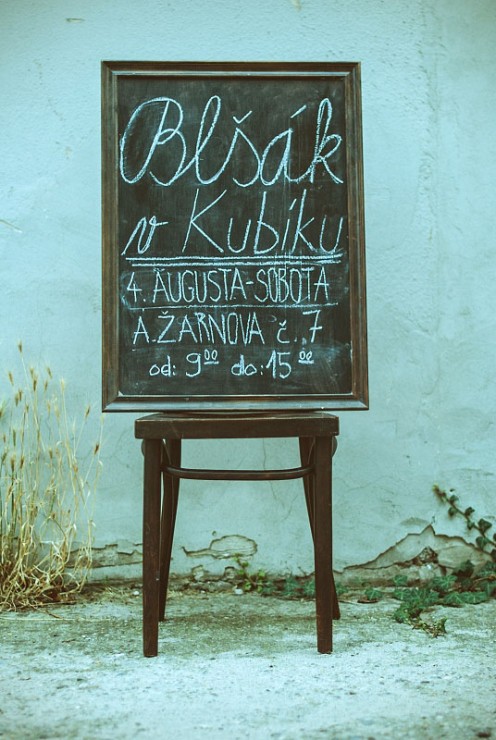 Blšák
v Kubíku
4. AUGUSTA-SOBOTA
A. ŽARNOVA č. 7
od: 9⁰⁰ do: 15⁰⁰